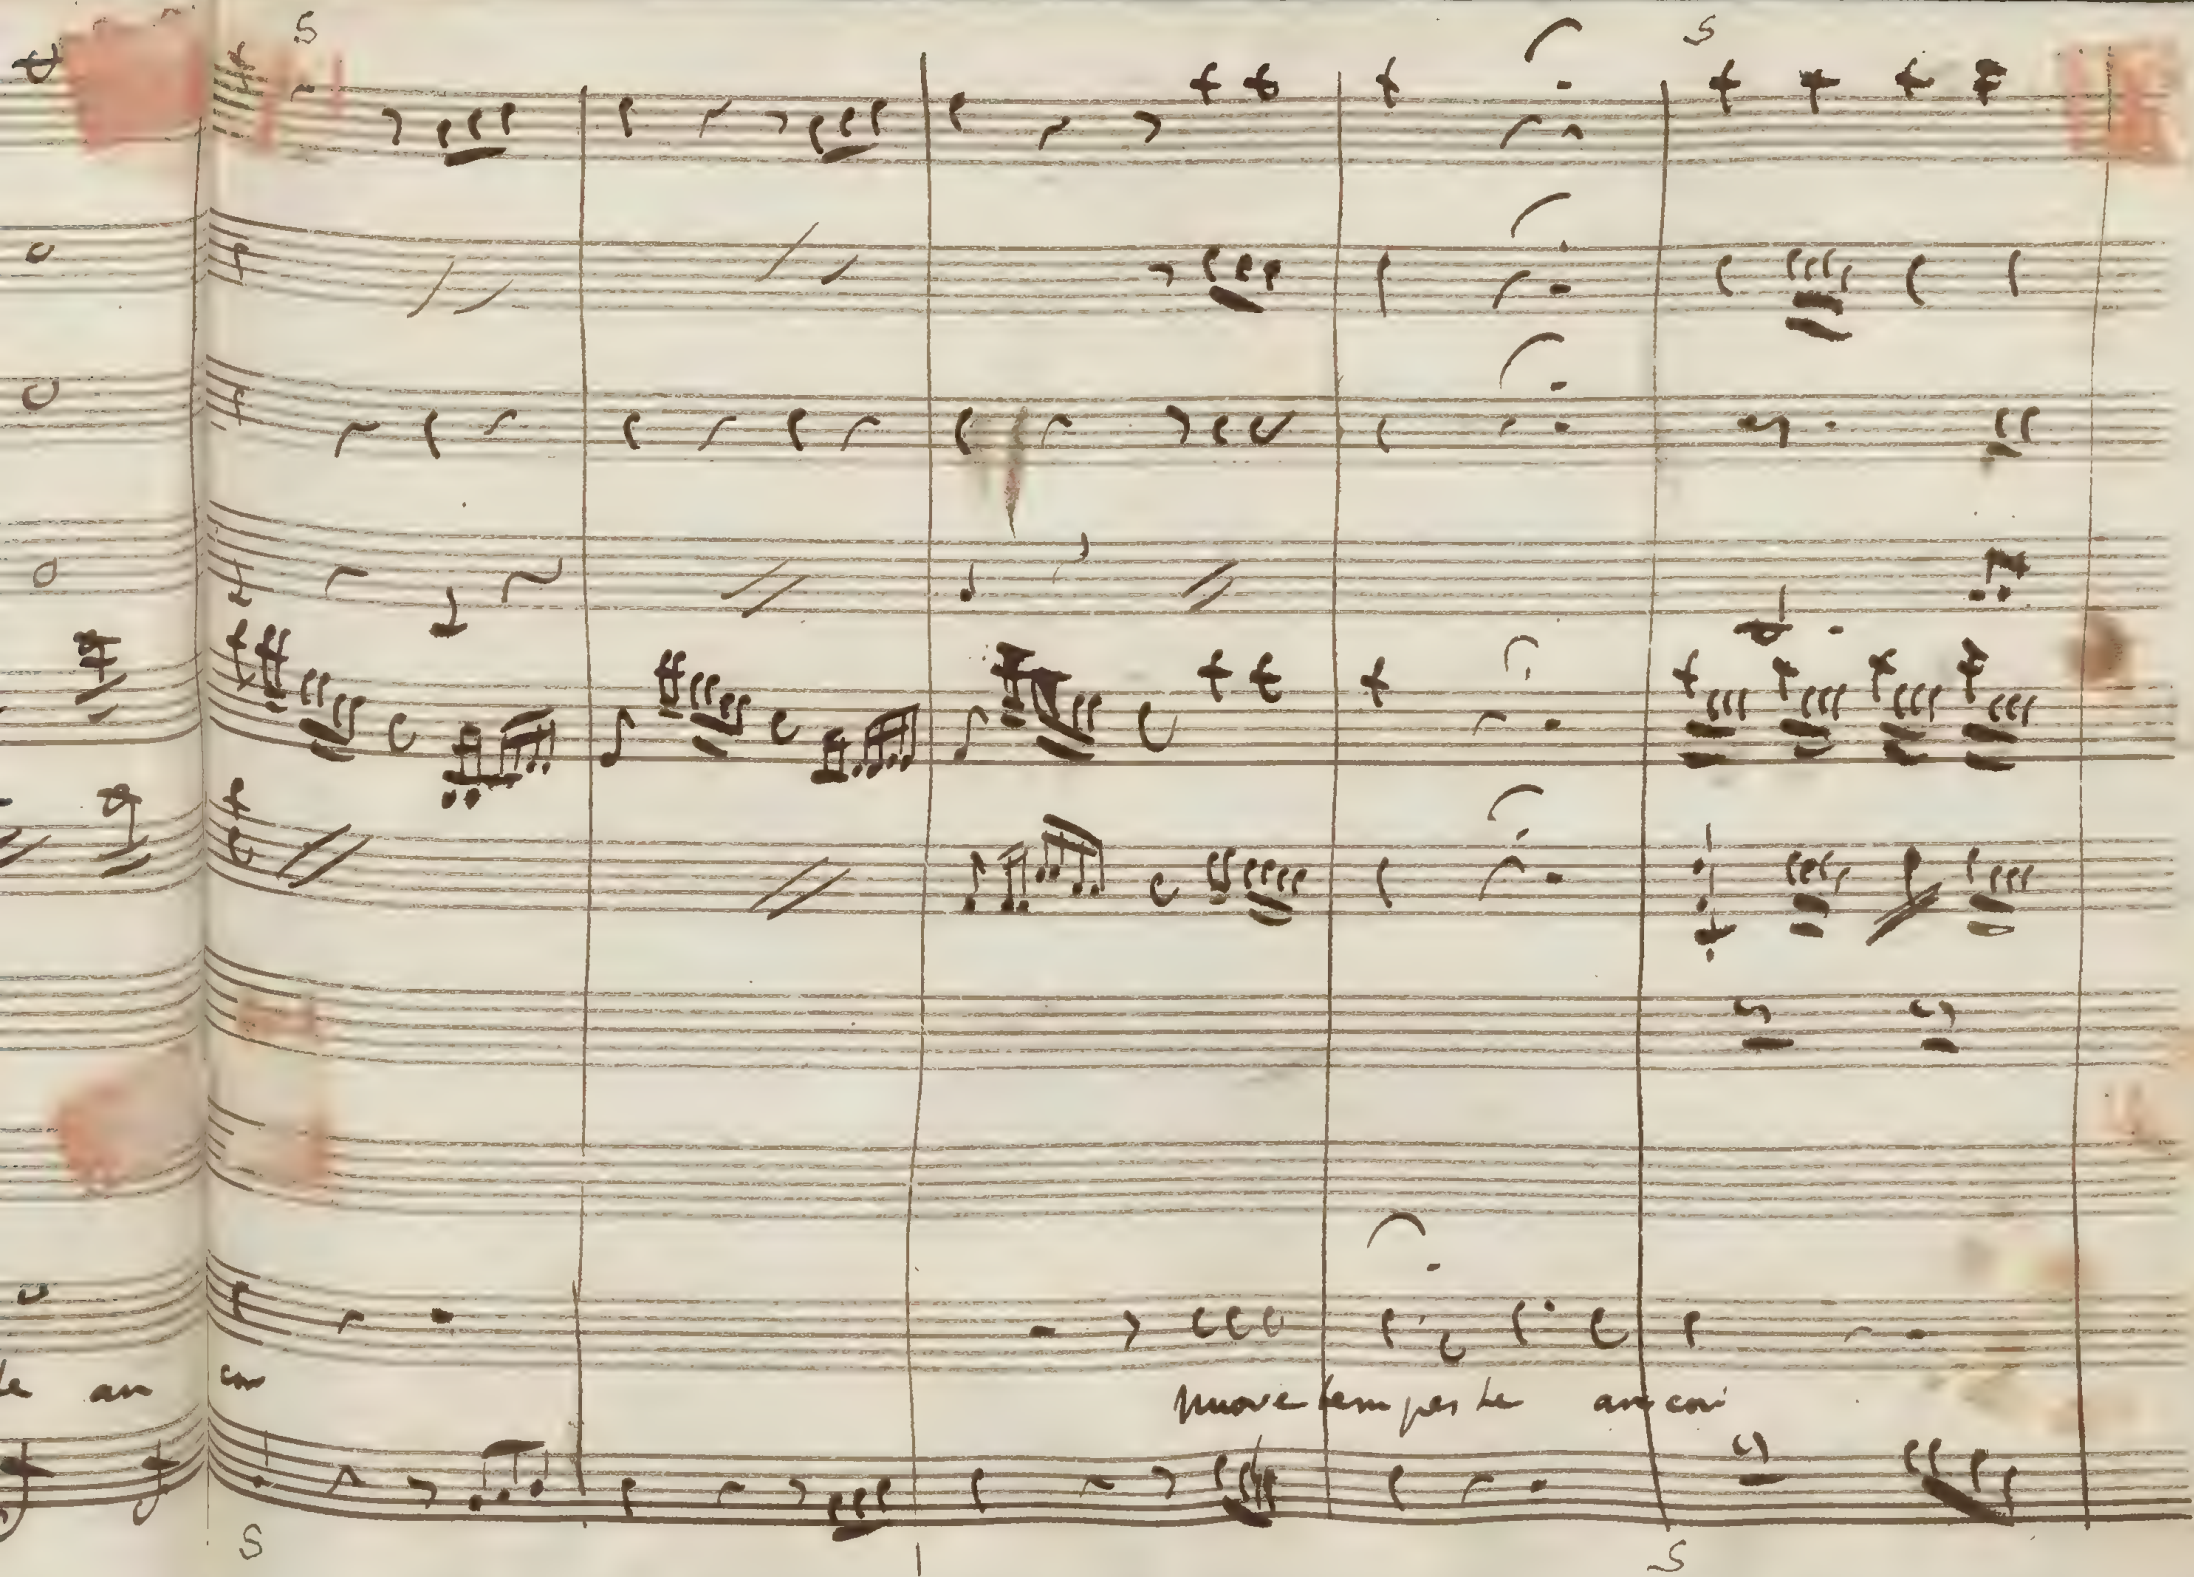 S S
le an cor nuove tempeste ancor
S S